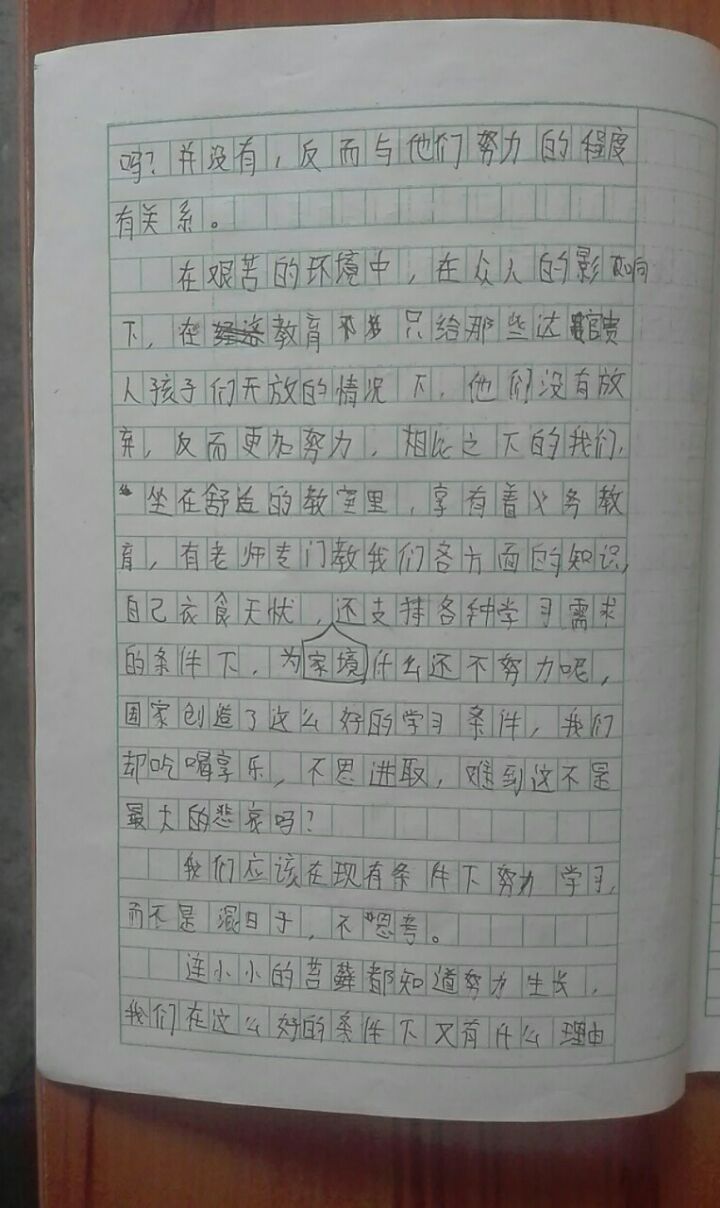 吗？并没有，反而与他们努力的程度
有关系。
在艰苦的环境中，在众人的影响
下，在教育只给那些达官贵
人孩子们开放的情况下，他们没有放
弃，反而更加努力，相比之下的我们，
坐在舒适的教室里，享有着义务教
育，有老师专门教我们各方面的知识，
自己衣食无忧，家境还支持各种学习需求
的条件下，为什么还不努力呢，
国家创造了这么好的学习条件，我们
却吃喝享乐，不思进取，难到这不是
最大的悲哀吗？
我们应该在现有条件下努力学习，
而不是混日子，不思考。
连小小的苔藓都知道努力生长，
我们在这么好的条件下又有什么理由